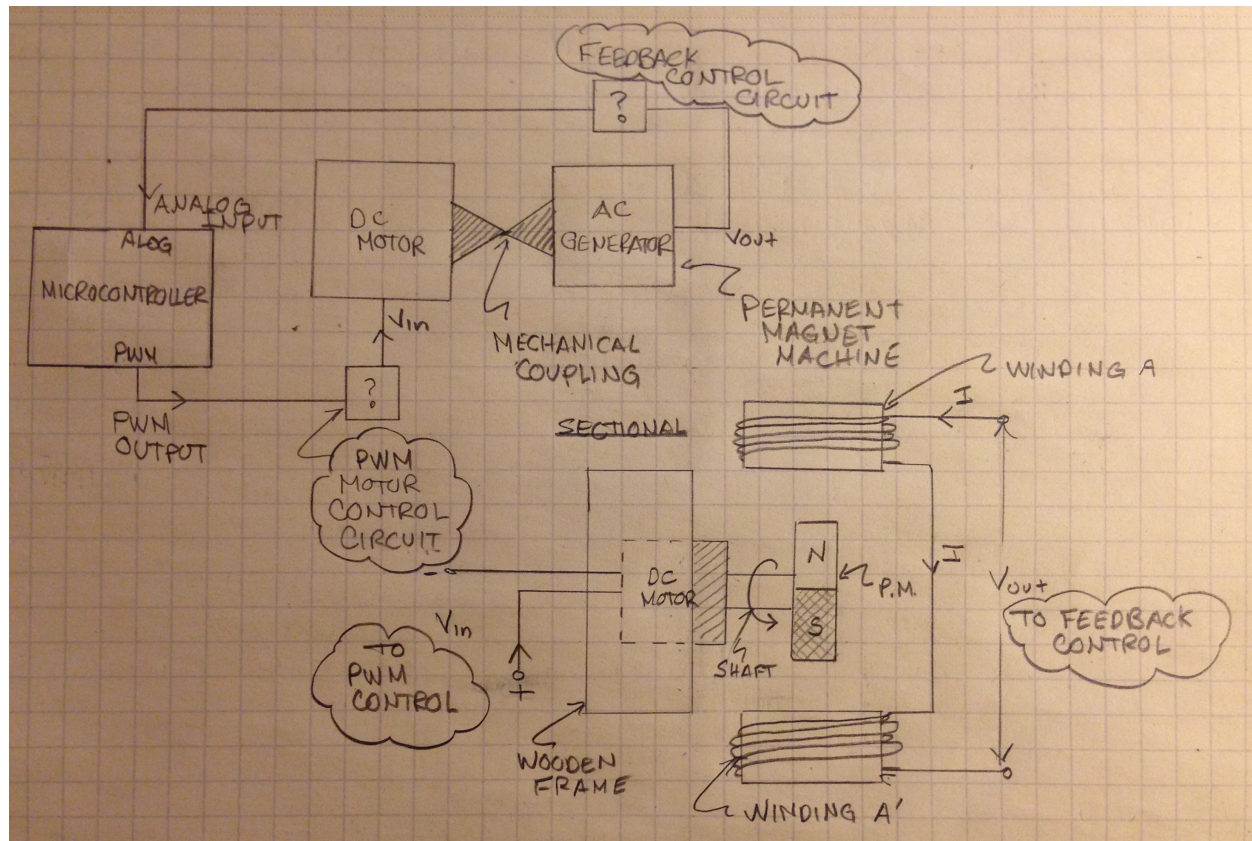 FEEDBACK
CONTROL
CIRCUIT
?
ANALOG
INPUT
ALOG
MICROCONTROLLER
PWM
PWM
OUTPUT
DC
MOTOR
AC
GENERATOR
Vout
Vin
?
MECHANICAL
COUPLING
PERMANENT
MAGNET
MACHINE
PWM
MOTOR
CONTROL
CIRCUIT
SECTIONAL
WINDING A
I
I
DC
MOTOR
N
S
P.M.
SHAFT
Vout
TO FEEDBACK
CONTROL
-
Vin
+
TO
PWM
CONTROL
WOODEN
FRAME
WINDING A'